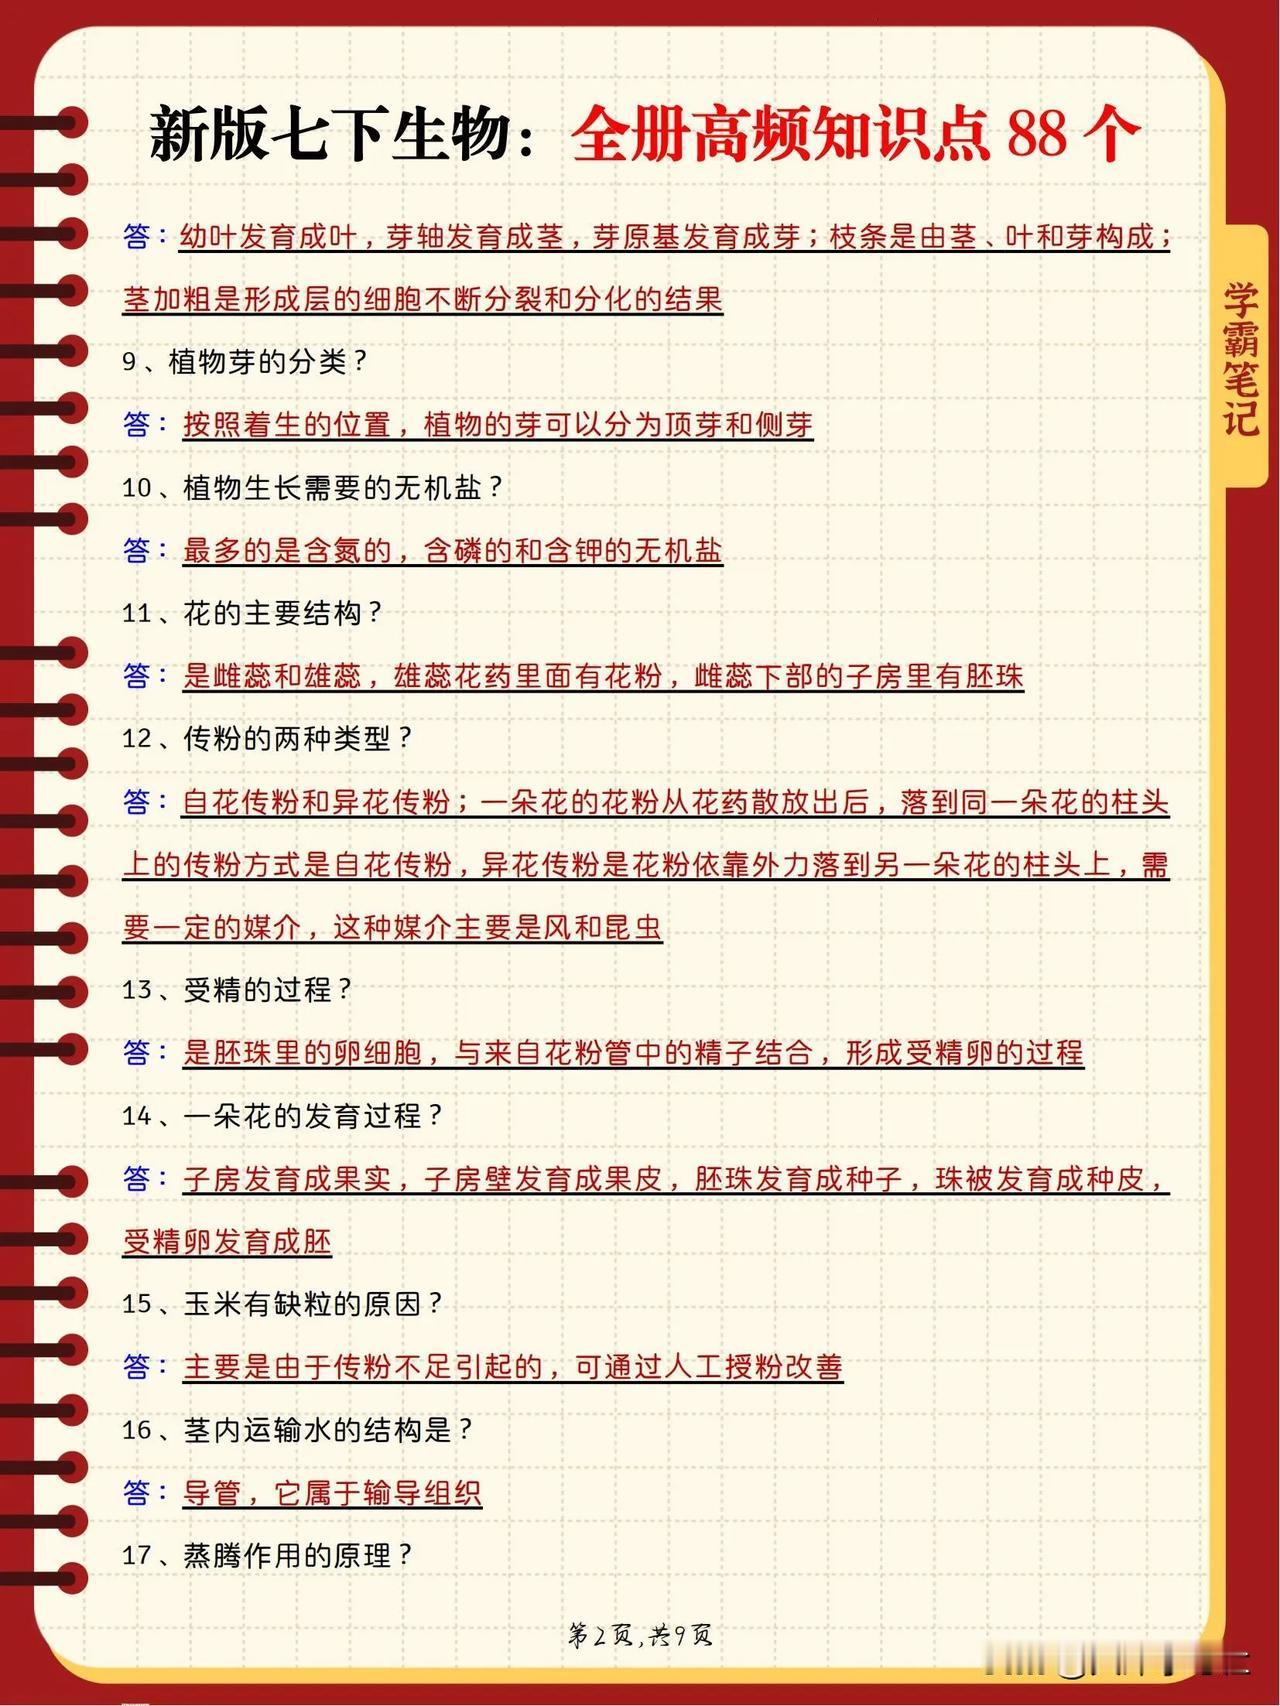 新版七下生物：全册高频知识点 88 个
答：幼叶发育成叶，芽轴发育成茎，芽原基发育成芽；枝条是由茎、叶和芽构成；
茎加粗是形成层的细胞不断分裂和分化的结果
9、植物芽的分类？
答：按照着生的位置，植物的芽可以分为顶芽和侧芽
10、植物生长需要的无机盐？
答：最多的是含氮的，含磷的和含钾的无机盐
11、花的主要结构？
答：是雌蕊和雄蕊，雄蕊花药里面有花粉，雌蕊下部的子房里有胚珠
12、传粉的两种类型？
答：自花传粉和异花传粉；一朵花的花粉从花药散放出后，落到同一朵花的柱头
上的传粉方式是自花传粉，异花传粉是花粉依靠外力落到另一朵花的柱头上，需
要一定的媒介，这种媒介主要是风和昆虫
13、受精的过程？
答：是胚珠里的卵细胞，与来自花粉管中的精子结合，形成受精卵的过程
14、一朵花的发育过程？
答：子房发育成果实，子房壁发育成果皮，胚珠发育成种子，珠被发育成种皮，
受精卵发育成胚
15、玉米有缺粒的原因？
答：主要是由于传粉不足引起的，可通过人工授粉改善
16、茎内运输水的结构是？
答：导管，它属于输导组织
17、蒸腾作用的原理？
第2页，共9页
学霸笔记